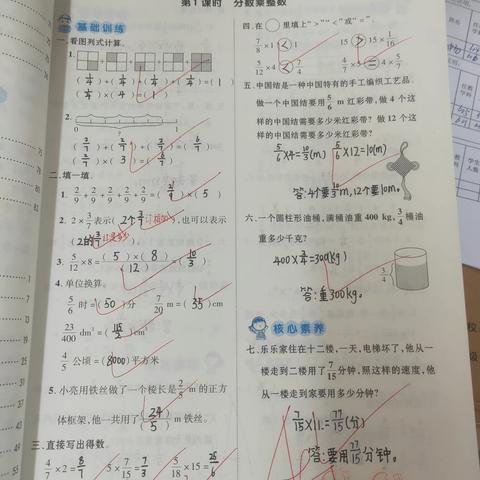 第1课时 分数乘整数
基础训练
一、看图列式计算。
1.
(1/4)+(1/4)+(1/4)+(1/4)=(1)
(1/4)×(4)=(1)
2.
0 ? 1
(2/7)+(2/7)+(2/7)=(6/7)
(2/7)×(3)=(6/7)
二、填一填。
1. 2/9+2/9+2/9+2/9+2/9=(2/9)×(5)
2. 2×3/7表示(2个3/7相加),也可以表示
(2的3/7是多少)
3. 5/12×8=(5)×(8)/(12)=(10/3)
4. 单位换算。
5/6时=(50)分 7/20 m=(35)cm
23/400 dm³=( )cm³
4/5公顷=(8000)平方米
5. 小亮用铁丝做了一个棱长是2/5 m的正方
体框架,他一共用了(24/5)m铁丝。
三、直接写出得数。
4/7×2=8/7 5×7/15=7/3 5/18×15=25/6
四、在○里填上">""<"或"="。
7/8×1<1 15>15×1/16
5/12×4<7/4 4/7×5=4×5/7
五、中国结是一种中国特有的手工编织工艺品。
做一个中国结要用5/6 m红彩带,做4个这
样的中国结需要多少米红彩带?做12个这
样的中国结需要多少米红彩带?
5/6×4=10/3(m) 5/6×12=10(m)
答:4个要10/3m,12个要10m。
六、一个圆柱形油桶,满桶油重400 kg,3/4桶油
重多少千克?
400×3/4=300(kg)
3/4
答:重300kg。
核心素养
七、乐乐家住在十二楼,一天,电梯坏了,他从一
楼走到二楼用了7/15分钟,照这样的速度,他
从一楼走到家要用多少分钟?
7/15×11=77/15(分)
答:要用77/15分钟。